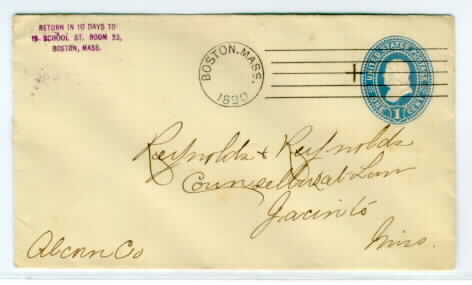 RETURN IN 10 DAYS TO
19 SCHOOL ST. ROOM 53,
BOSTON, MASS.
BOSTON, MASS.
1890
UNITED STATES POSTAGE
ONE 1 CENT
Reynolds & Reynolds
Counsellors at Law
Jacinto
Miss.
Alcorn Co